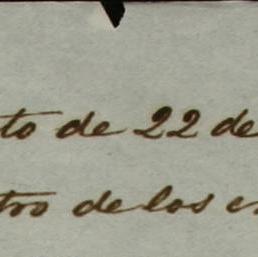 to de 22 de
tro de los e